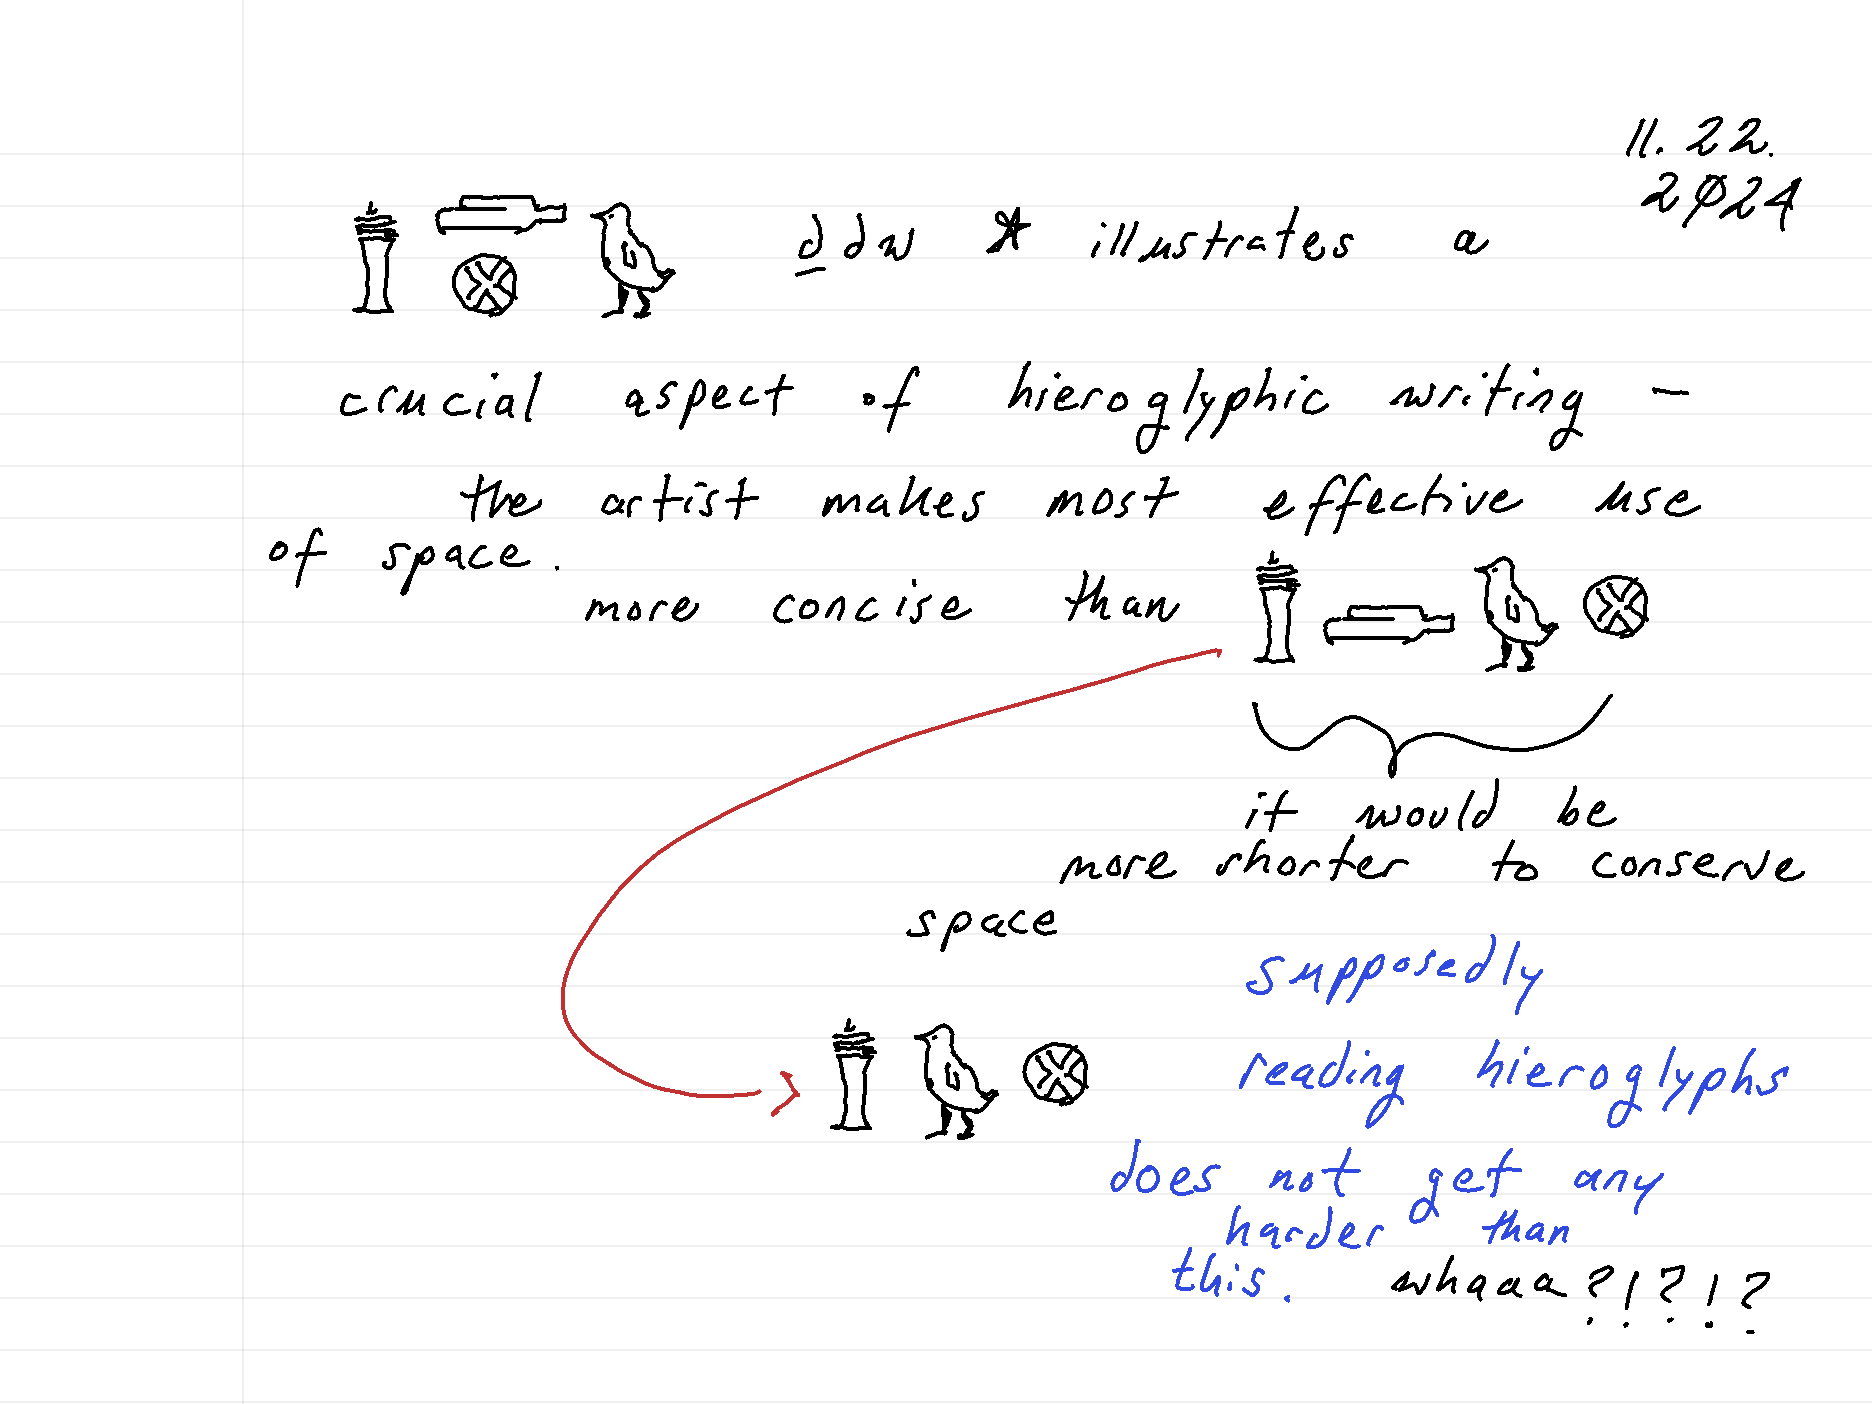 11. 22.
2024
𓊽𓂧𓊖𓅱 ḏdw * illustrates a
crucial aspect of hieroglyphic writing –
the artist makes most effective use
of space.
more concise than 𓊽𓂧𓅱𓊖
it would be
more shorter to conserve
space
supposedly
𓊽𓅱𓊖 reading hieroglyphs
does not get any
harder than
this. whaaa?!?!?